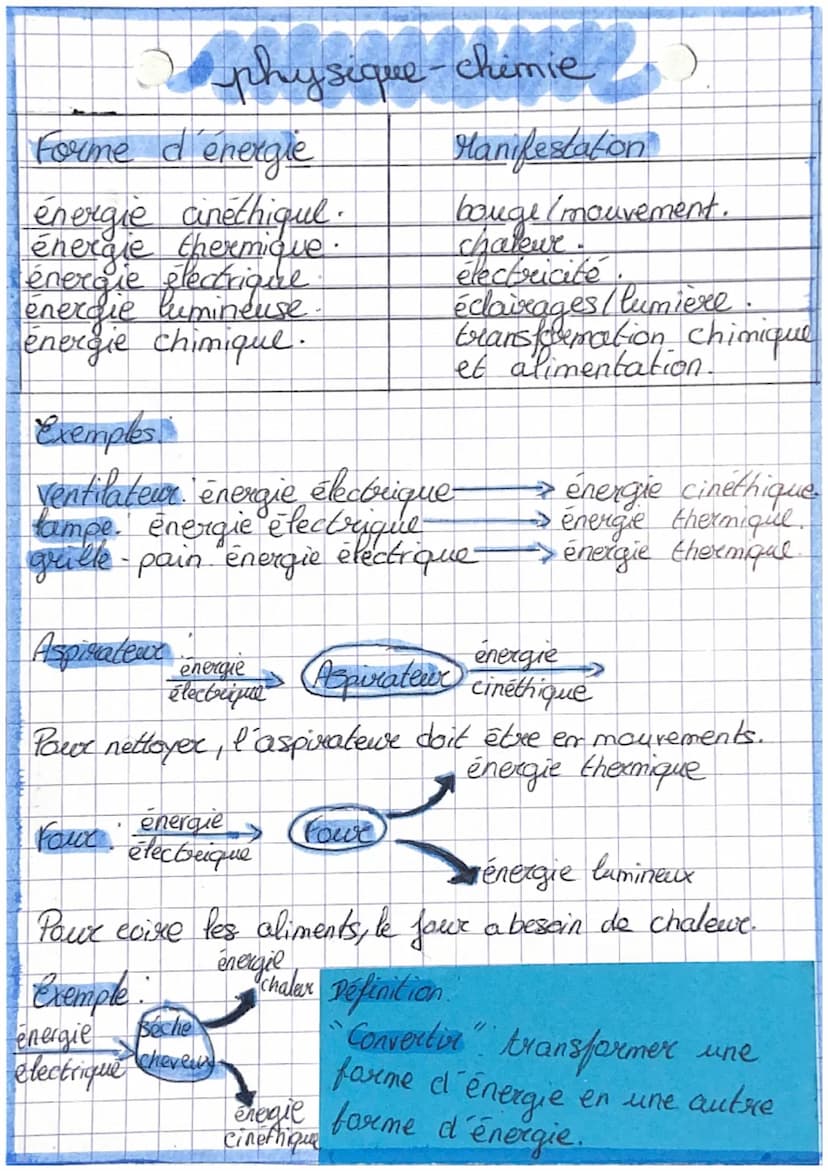 physique-chimie
Forme d'énergie
Manifestation
énergie cinéthique.
bouge/mouvement.
énergie thermique.
chaleur.
énergie électrique
électricité.
énergie lumineuse.
éclairages/lumière.
énergie chimique.
transformation chimique
et alimentation.
Exemples:
ventilateur: énergie électrique → énergie cinéthique.
lampe: énergie électrique → énergie thermique.
grille-pain: énergie électrique → énergie thermique.
Aspirateur:
énergie
électrique
Aspirateur
énergie
cinéthique
Pour nettoyer, l'aspirateur doit être en mouvements.
énergie thermique
Four:
énergie
électrique
Four
énergie lumineux
Pour cuire les aliments, le four a besoin de chaleur.
Exemple:
énergie
électrique
Sèche
cheveux
énergie
chaleur
énergie
cinéthique
Définition:
"Convertir": transformer une
forme d'énergie en une autre
forme d'énergie.